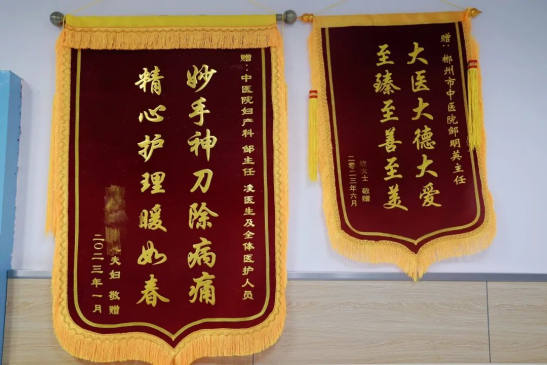 赠：中医院妇产科 邹主任 凌医生及全体医护人员
妙手神刀除病痛
精心护理暖如春
夫妇 敬赠
二〇二三年一月
赠：郴州市中医院邹明英主任
大医大德大爱
至臻至善至美
女士 敬赠
二零二三年六月